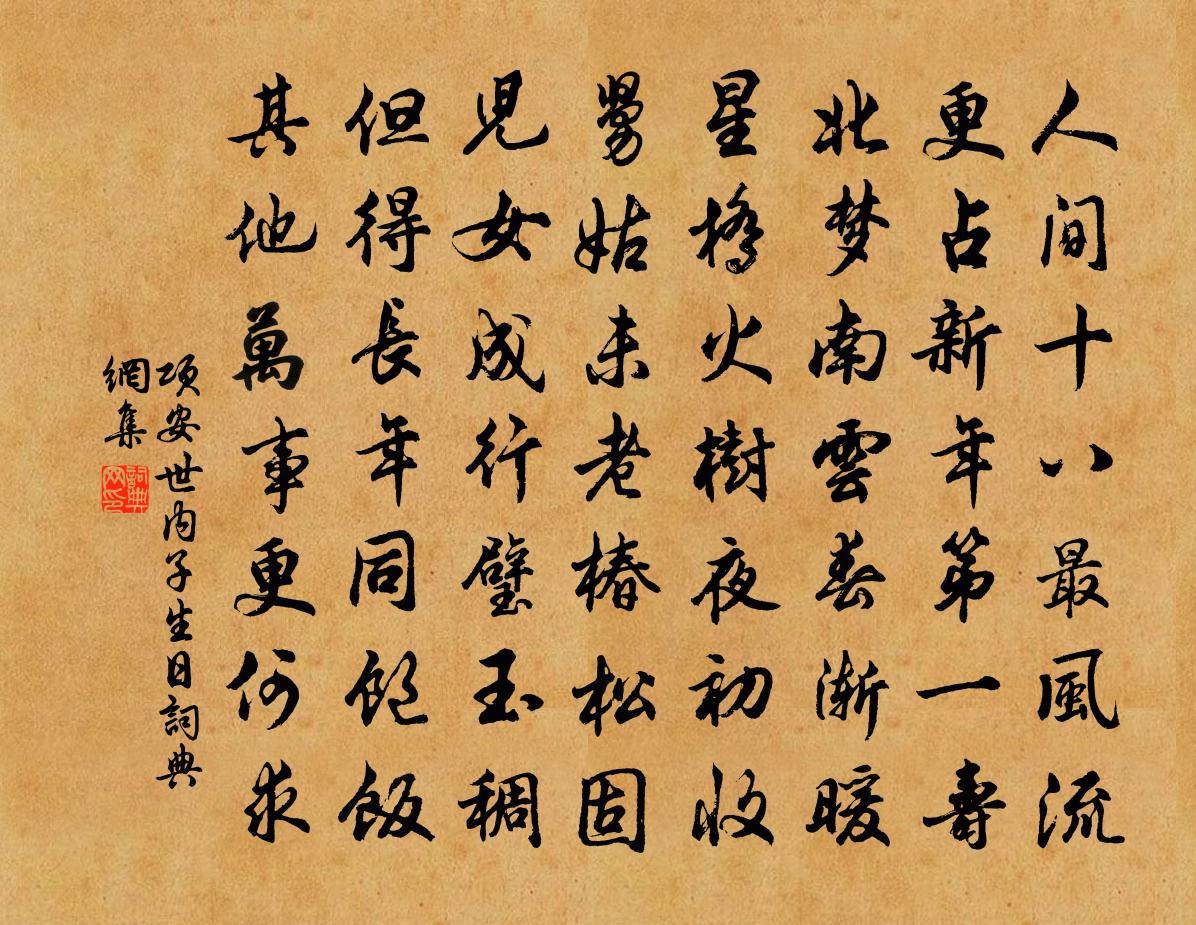 人間十八最風流
更占新年第一壽
北梦南雲春漸暖
星橋火樹夜初收
舅姑未老椿松固
児女成行璧玉稠
但得長年同飽飯
其他萬事更何求
項安世内子生日詞典
網集
詞典
网印